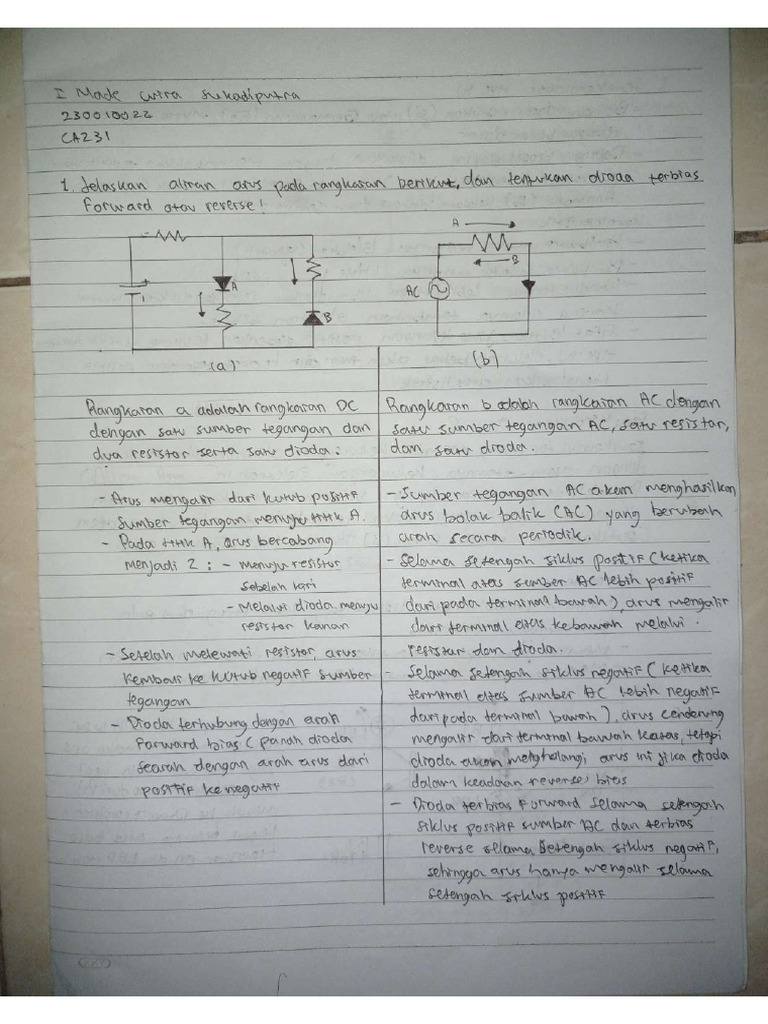 I Made Wira Sukadiputra
230010022
CA231
1. Jelaskan aliran arus pada rangkaian berikut, dan tentukan dioda terbias
Forward atau reverse!
A
B
(a)
A
B
AC
(b)
Rangkaian a adalah rangkaian DC
dengan satu sumber tegangan dan
dua resistor serta satu dioda:
- Arus mengalir dari kutub positif
sumber tegangan menuju titik A.
- Pada titik A, arus bercabang
menjadi 2 : - menuju resistor
sebelah kiri
- Melalui dioda menuju
resistor kanan
- Setelah melewati resistor, arus
kembali ke kutub negatif sumber
tegangan
- Dioda terhubung dengan arah
Forward bias (panah dioda
searah dengan arah arus dari
positif ke negatif
Rangkaian b adalah rangkaian AC dengan
satu sumber tegangan AC, satu resistor,
dan satu dioda.
- Sumber tegangan AC akan menghasilkan
arus bolak balik (AC) yang berubah
arah secara periodik.
- Selama setengah siklus positif (ketika
terminal atas sumber AC lebih positif
dari pada terminal bawah), arus mengalir
dari terminal atas kebawah melalui
resistor dan dioda.
- Selama setengah siklus negatif (ketika
terminal atas sumber AC lebih negatif
daripada terminal bawah), arus cenderung
mengalir dari terminal bawah keatas, tetapi
dioda akan menghalangi arus ini jika dioda
dalam keadaan reverse bias
- Dioda terbias Forward selama setengah
siklus positif sumber AC dan terbias
reverse selama setengah siklus negatif,
sehingga arus hanya mengalir selama
setengah siklus positif